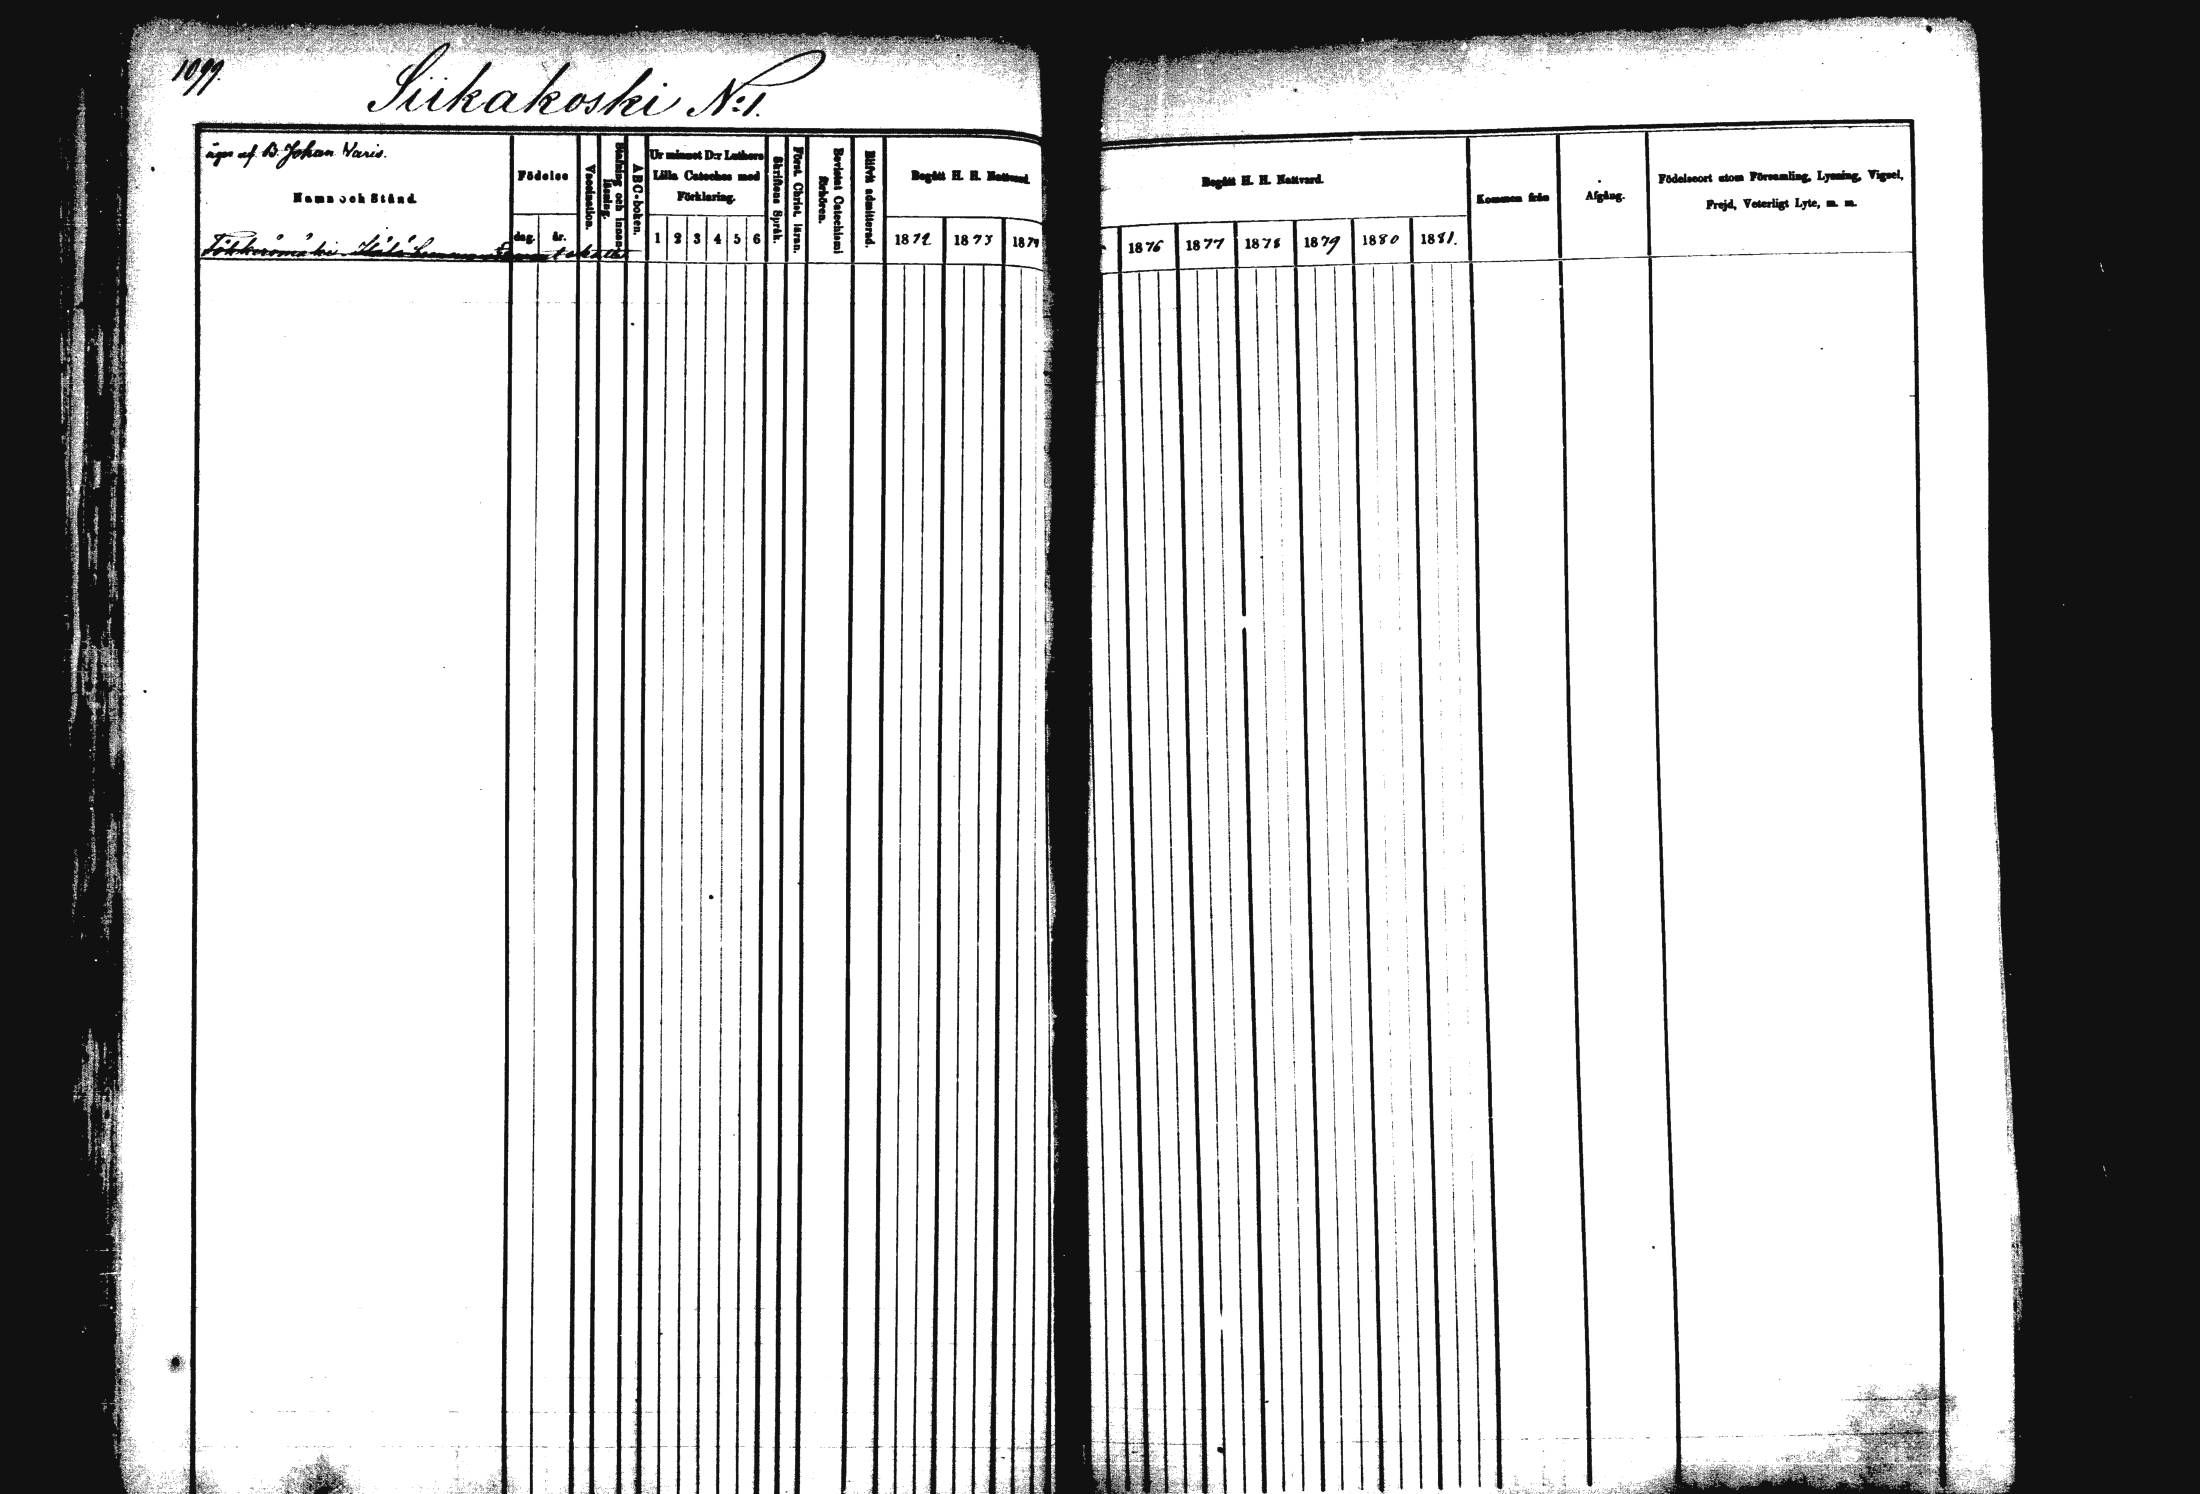 1099.
Siikakoski No 1.
äges af B. Johan Waris.
Namn och Stånd.
Födelse
dag.
år.
Vaccination.
Stafning och innan-
läsning.
ABC-boken.
Ur minnet D:r Luthers
Lilla Cateches med
Förklaring.
1 2 3 4 5 6
Skriftens Språk.
Först. Christ. läran.
Bevistat Catechismi
förhören.
Blifvit admitterad.
Begått H. H. Nattvard.
1872 1873 1874
Begått H. H. Nattvard.
1876 1877 1878 1879 1880 1881.
Kommen från
Afgång.
Födelseort utom Församling, Lysning, Vigsel,
Frejd, Veterligt Lyte, m. m.